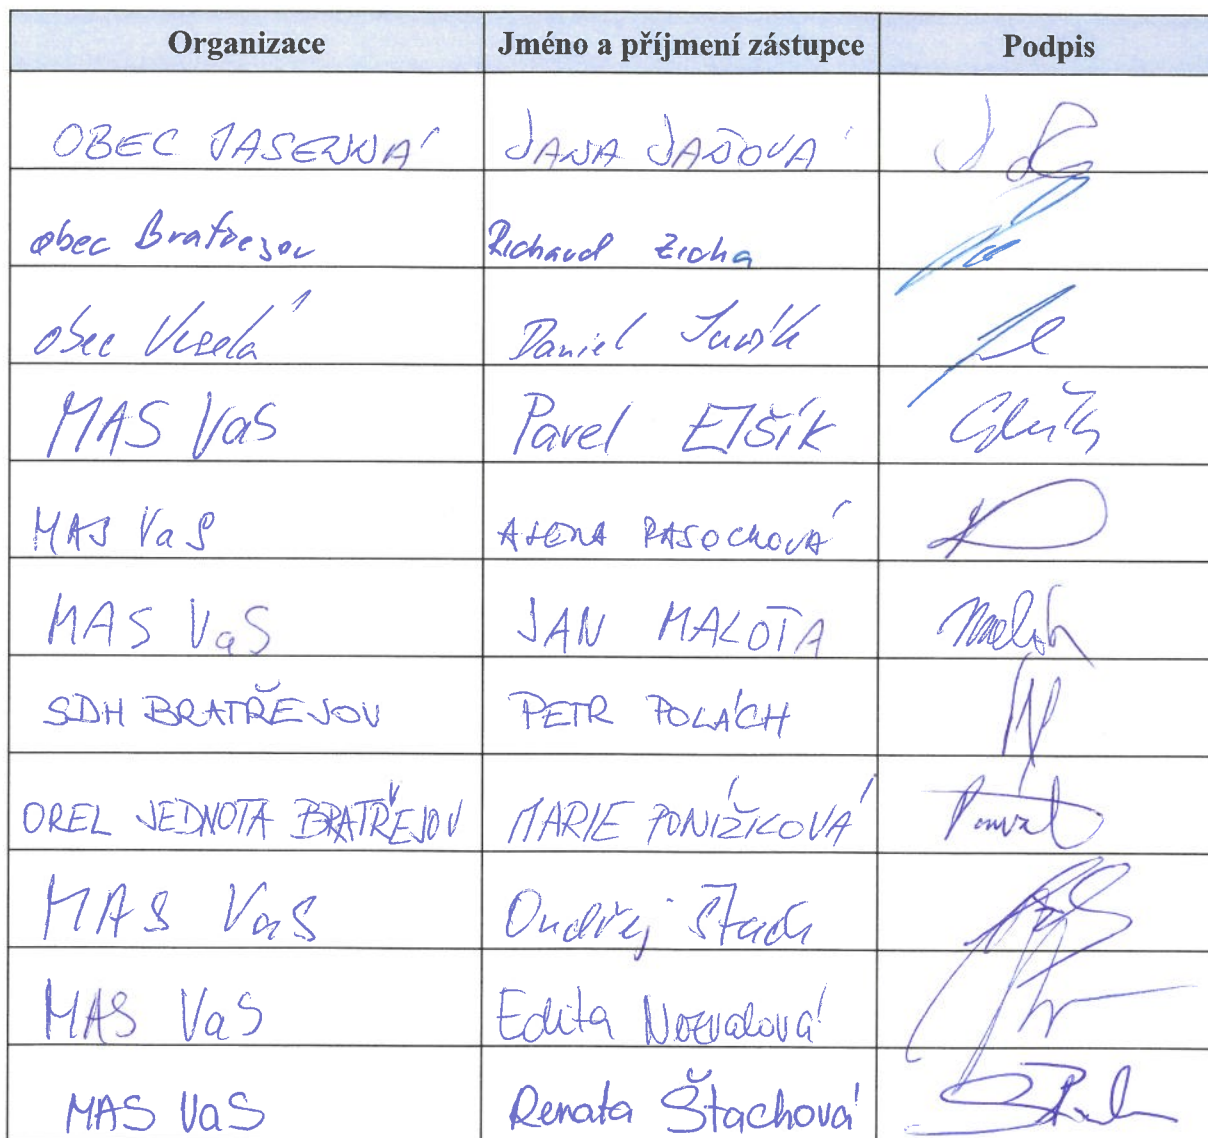 Organizace Jméno a příjmení zástupce Podpis
OBEC JASENNÁ JANA JAŇOVÁ
obec Bratřejov Richard Zicha
obec Veselá Daniel Juřík
MAS VaS Pavel Elšík
MAS VaS ALENA RASOCHOVÁ
MAS VaS JAN MALOTA
SDH BRATŘEJOV PETR POLÁCH
OREL JEDNOTA BRATŘEJOV MARIE PONÍŽILOVÁ
MAS VaS Ondřej Štach
MAS VaS Edita Nozvalová
MAS VaS Renata Štachová